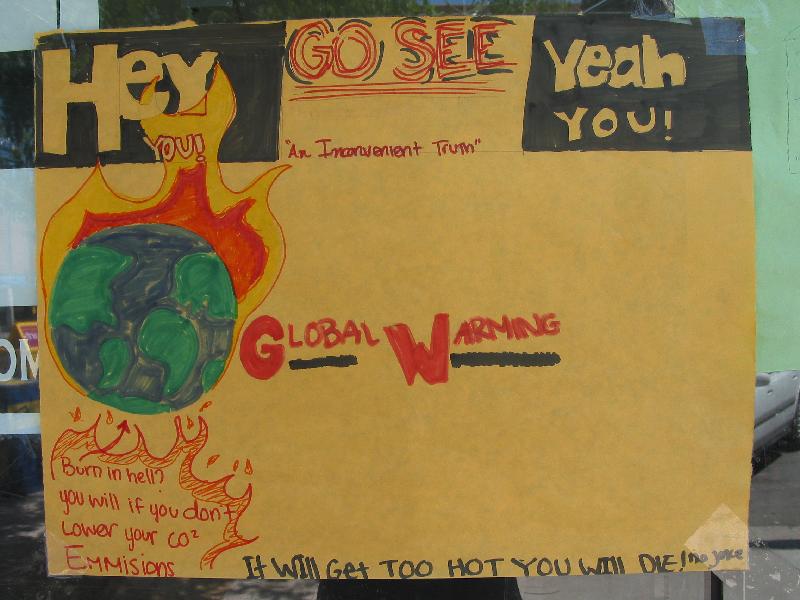 Hey
YOU!
GO SEE
"An Inconvenient Truth"
Yeah
YOU!
GLOBAL WARMING
Burn in hell?
you will if you don't
Lower your CO²
Emmisions
It Will Get TOO HOT YOU Will DIE! no joke
OM